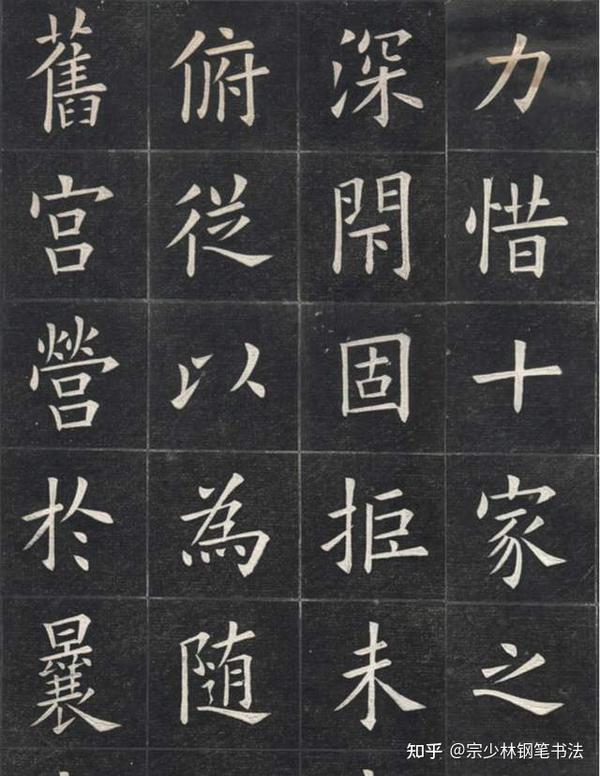 力惜十家之
深閇固拒未
俯従以為随
舊宫營於曩
知乎 @宗少林钢笔书法